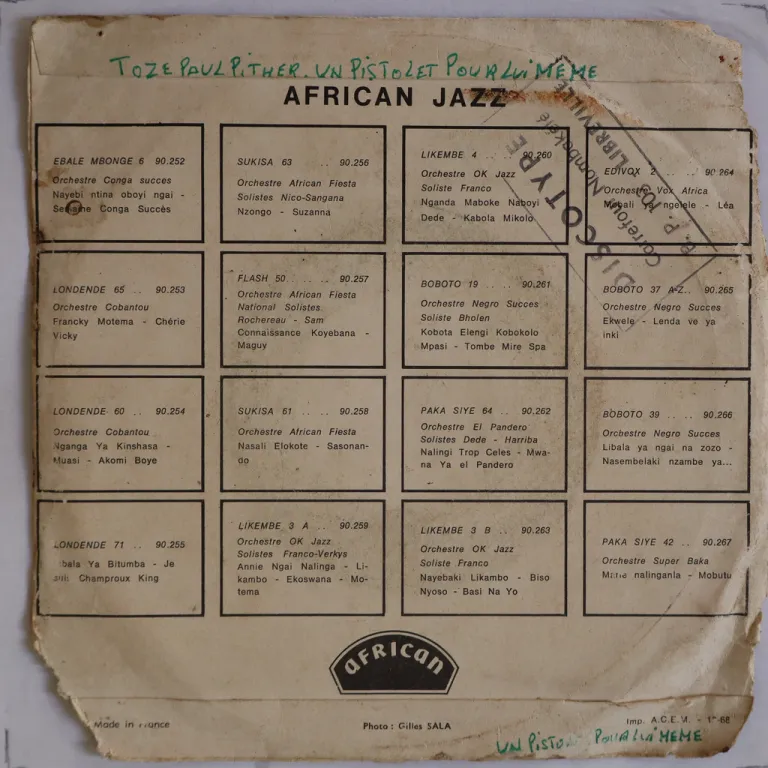 TOZE PAUL PITHER. UN PISTOLET POUR LUI MEME
AFRICAN JAZZ
EBALE MBONGE 6 90.252
Orchestre Conga succes
Nayebi ntina oboyi ngai -
Semaine Conga Succès
SUKISA 63 .. 90.256
Orchestre African Fiesta
Solistes Nico-Sangana
Nzongo - Suzanna
LIKEMBE 4 .. .. 90.260
Orchestre OK Jazz
Soliste Franco
Nganda Maboke Naboyi
Dede - Kabola Mikolo
EDIVOX 2 .. .. 90.264
Orchestre Vox Africa
Mobali ya ngelele - Léa
DISCOTYPE
Carrefour Nombakélé
B. P. LIBREVILLE
LONDENDE 65 .. 90.253
Orchestre Cobantou
Francky Motema - Chérie
Vicky
FLASH 50 .. .. 90.257
Orchestre African Fiesta
National Solistes
Rochereau - Sam
Connaissance Koyebana -
Maguy
BOBOTO 19 .. .. 90.261
Orchestre Negro Succes
Soliste Bholen
Kobota Elengi Kobokolo
Mpasi - Tombe Mire Spa
BOBOTO 37 A-Z.. 90.265
Orchestre Negro Succes
Ekwele - Lenda ve ya
inki
LONDENDE 60 .. 90.254
Orchestre Cobantou
Nganga Ya Kinshasa -
Muasi - Akomi Boye
SUKISA 61 .. 90.258
Orchestre African Fiesta
Nasali Elokote - Sasonan-
do
PAKA SIYE 64 .. 90.262
Orchestre El Pandero
Solistes Dede - Harriba
Nalingi Trop Celes - Mwa-
na Ya el Pandero
BOBOTO 39 .. .. 90.266
Orchestre Negro Succes
Libala ya ngai na zozo -
Nasembelaki nzambe ya...
LONDENDE 71 .. 90.255
Ya Bitumba - Je
suis Champroux King
LIKEMBE 3 A .. 90.259
Orchestre OK Jazz
Solistes Franco-Verkys
Annie Ngai Nalinga - Li-
kambo - Ekoswana - Mo-
tema
LIKEMBE 3 B .. 90.263
Orchestre OK Jazz
Soliste Franco
Nayebaki Likambo - Biso
Nyoso - Basi Na Yo
PAKA SIYE 42 .. 90.267
Orchestre Super Baka
nalinganla - Mobutu
AFRICAN
Made in France
Photo : Gilles SALA
Imp. A.C.E.M. -
UN PISTOLET POUR LUI MEME